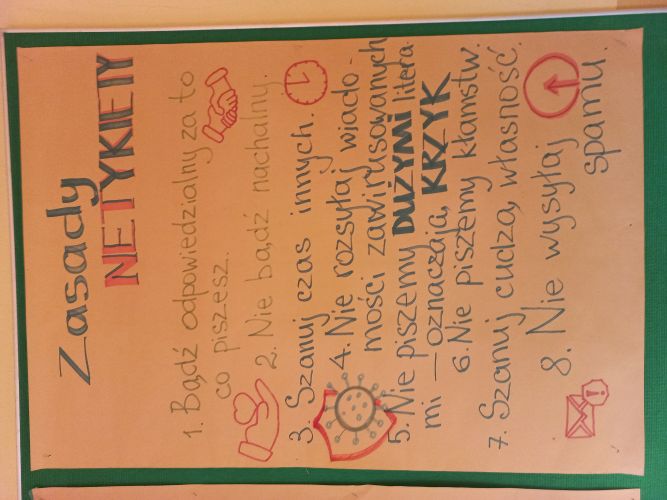 Zasady
NETYKIETY
1. Bądź odpowiedzialny za to
co piszesz.
2. Nie bądź nachalny.
3. Szanuj czas innych.
4. Nie rozsyłaj wiado-
mości zawirusowanych
5. Nie piszemy DUŻYMI litera
mi - oznaczają KRZYK
6. Nie piszemy kłamstw.
7. Szanuj cudzą własność.
8. Nie wysyłaj
spamu.